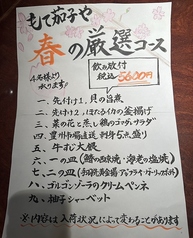 もて茄子や
春の厳選コース
4名様より
承ります!
飲み放付
税込5600円
一、先付け1、貝の旨煮
二、先付け2、ほたるイカの釜揚げ
三、菜の花と蒸し鶏のゴマダレサラダ
四、豊州市場直送 刺身5点盛り
五、牛もつ大飯
六、一の皿(鰆の塩焼・海老の塩焼)
七、二の皿
八、ゴルゴンゾーラのクリームペンネ
九、柚子シャーベット
※内容は入荷状況によって変わることがあります